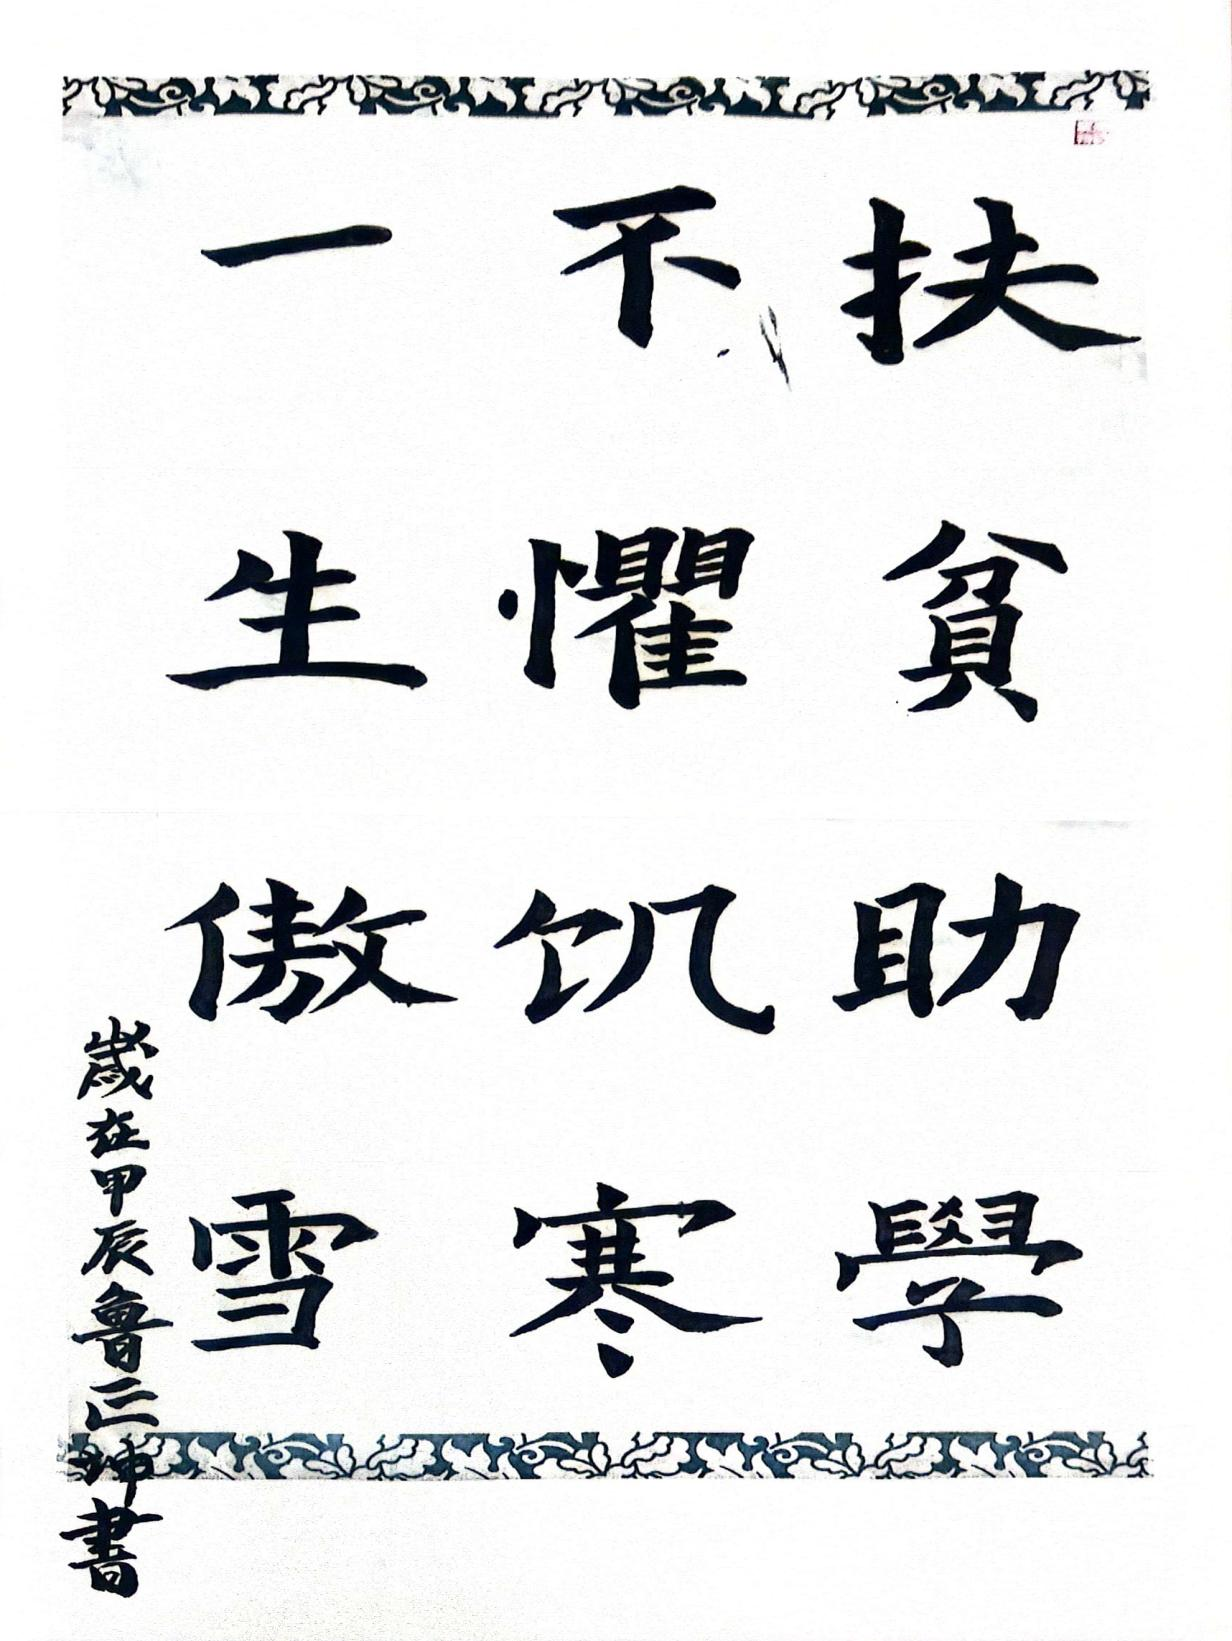 扶貧助學
不懼饥寒
一生傲雪
歲在甲辰魯正坤書